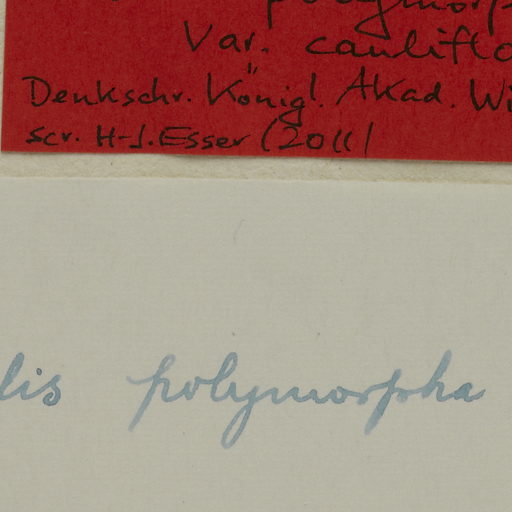 polymorp
Var. cauliflo
Denkschr. Königl. Akad. Wi
scr. H-J. Esser (2011)
lis polymorpha